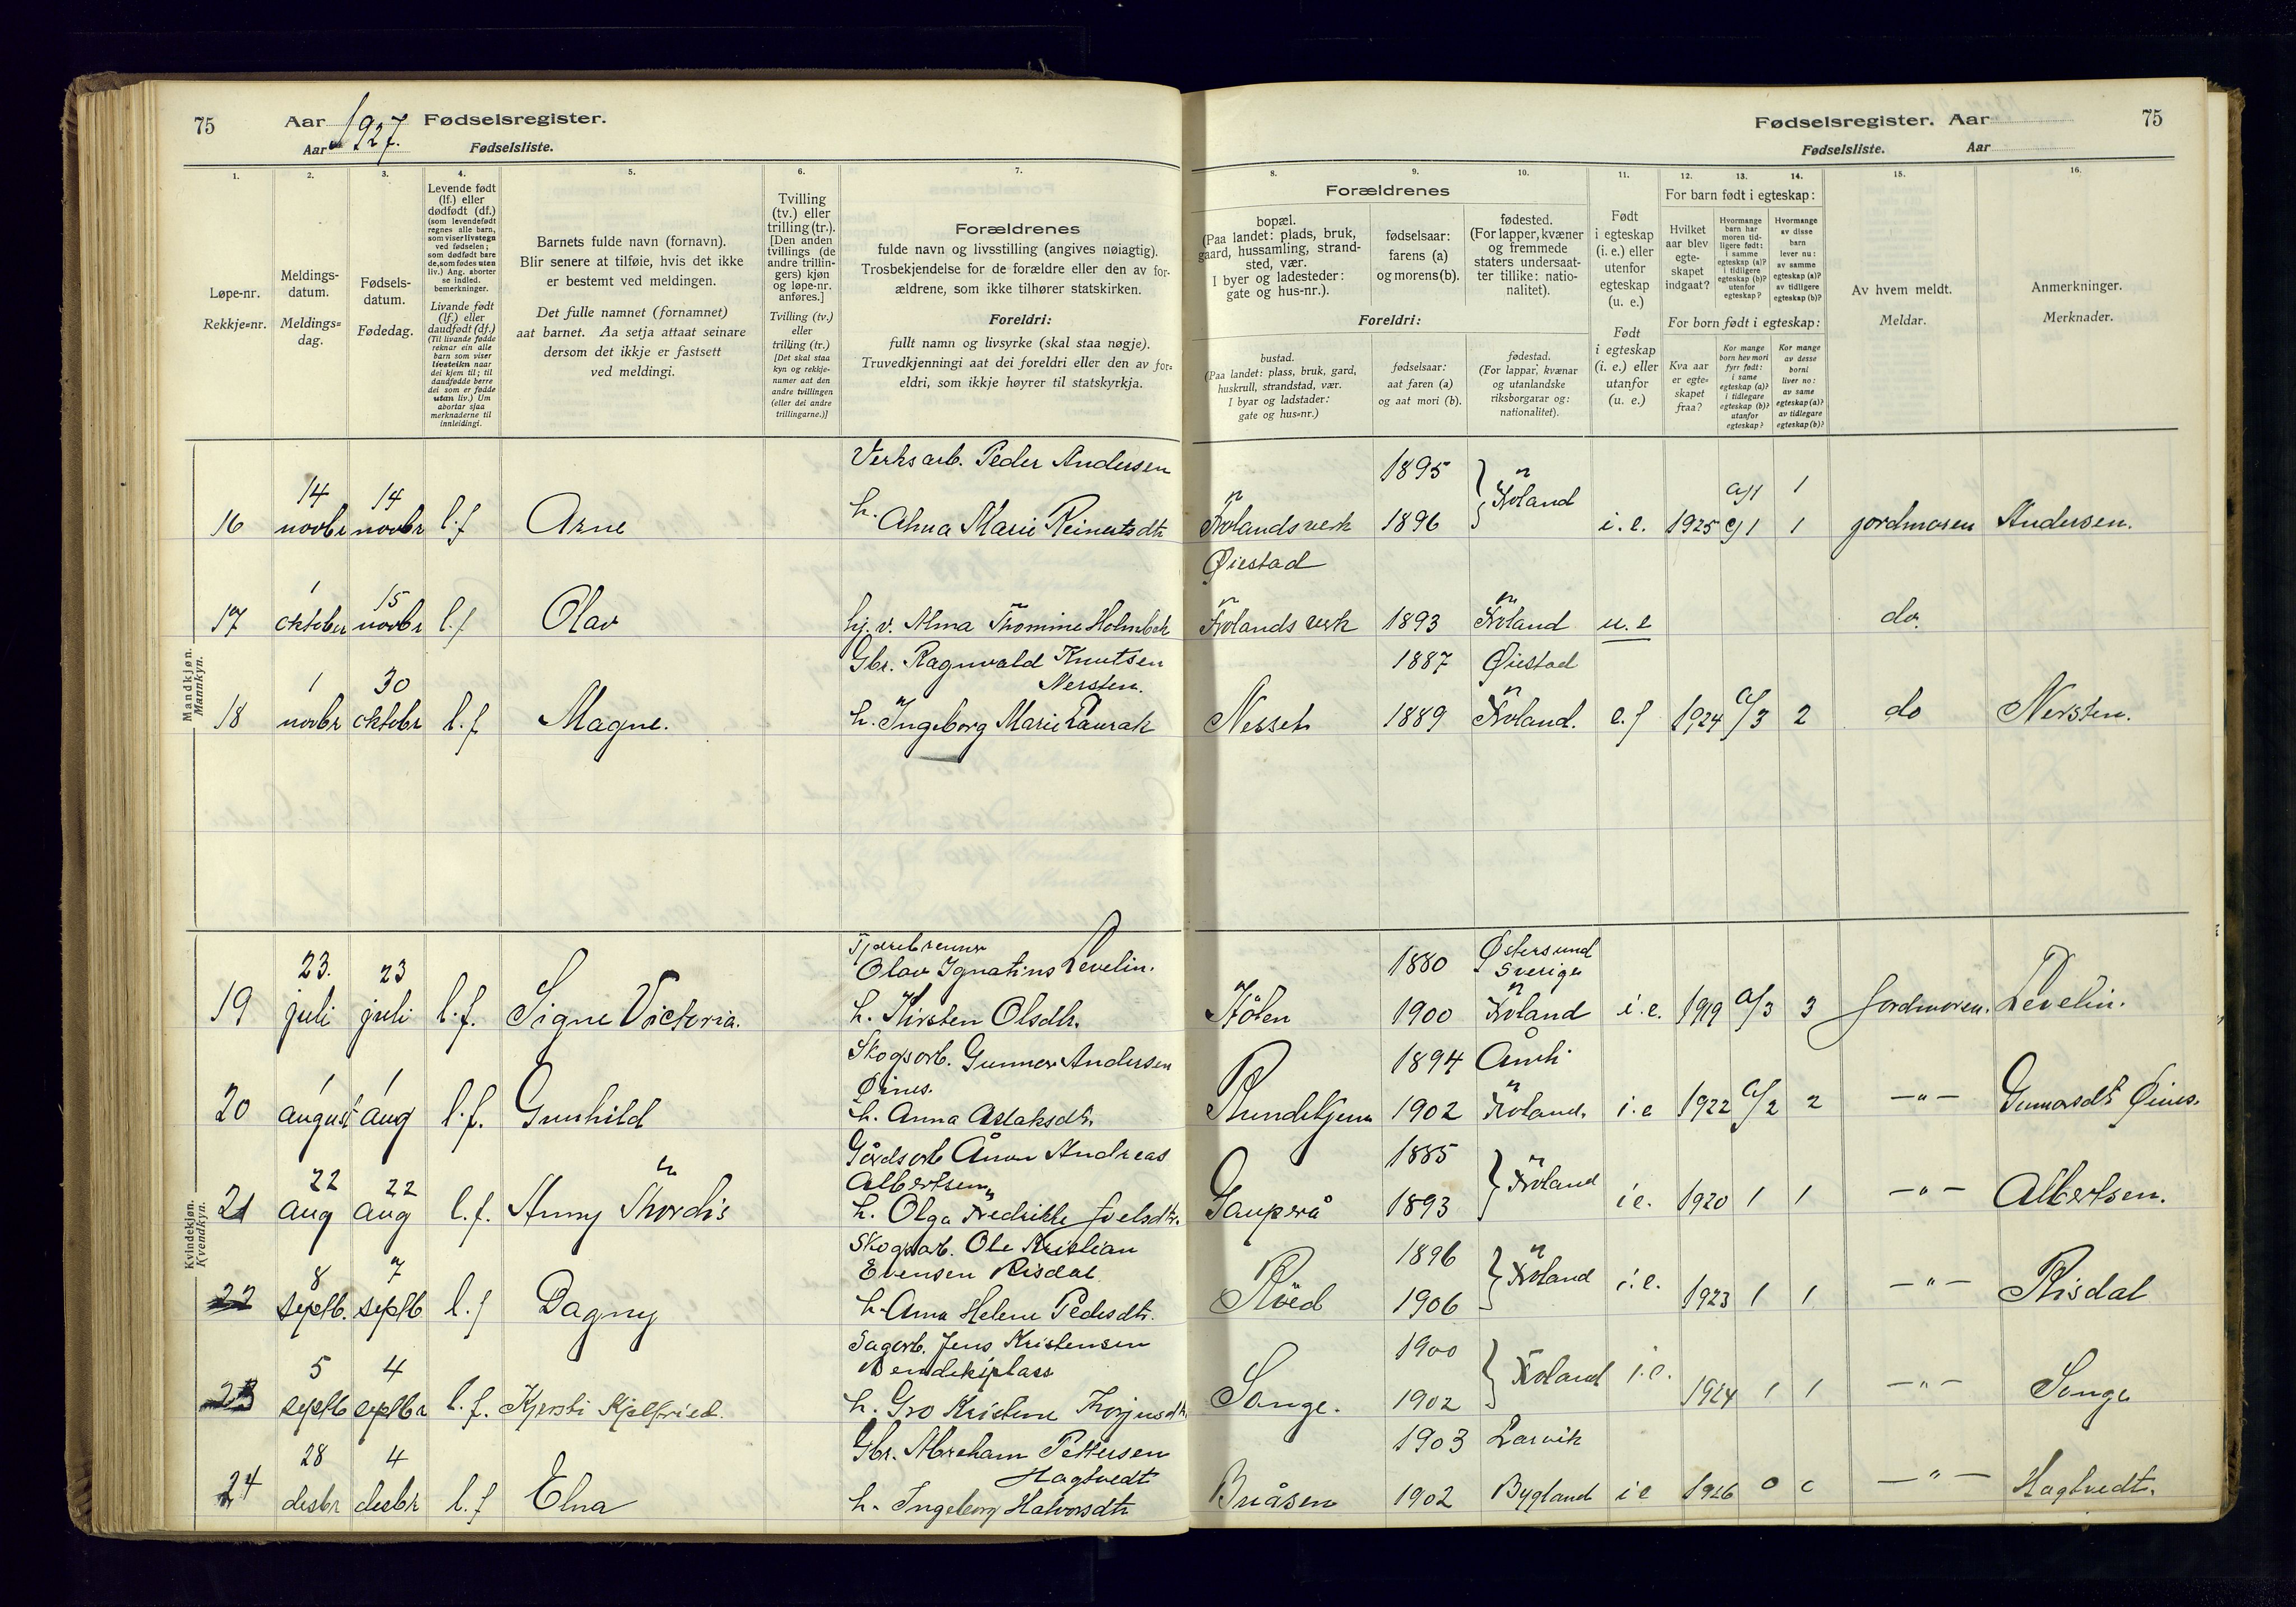 75
Aar 1927. Fødselsregister.
Aar Fødselsliste.
Fødselsregister. Aar
75
Fødselsliste. Aar
1. 2. 3. 4. 5. 6. 7.
8. 9. 10. 11. 12. 13. 14. 15. 16.
Løpe-nr.
Rekkje=nr.
Meldings-
datum.
Meldings=
dag.
Fødsels-
datum.
Fødedag.
Levende født
(lf.) eller
dødfødt (df.)
(som levendefødt
regnes alle barn,
som viser livstegn
ved fødselen;
som dødfødt bare
de, som fødes uten
liv.) Ang. aborter
se indled.
bemerkninger.
Livande født
(lf.) eller
daudfødt (df.)
(Til livande fødde
reknar ein alle
barn som viser
livsteikn naar
dei kjem til; til
daudfødde berre
dei som er fødde
utan liv.) Um
abortar sjaa
merknaderne til
innleidingi.
Barnets fulde navn (fornavn).
Blir senere at tilføie, hvis det ikke
er bestemt ved meldingen.
Det fulle namnet (fornamnet)
aat barnet. Aa setja attaat seinare
dersom det ikkje er fastsett
ved meldingi.
Tvilling
(tv.) eller
trilling (tr.).
[Den anden
tvillings (de
andre trillin-
gers) kjøn
og løpe-nr.
anføres.]
Tvilling (tv.)
eller
trilling (tr.)
[Det skal staa
kyn og rekkje-
numer aat den
andre tvillingen
(eller dei andre
trillingarne.)]
Forældrenes
fulde navn og livsstilling (angives nøiagtig).
Trosbekjendelse for de forældre eller den av for-
ældrene, som ikke tilhører statskirken.
Foreldri:
fullt namn og livsyrke (skal staa nøgje).
Truvedkjenningi aat dei foreldri eller den av for=
eldri, som ikkje høyrer til statskyrkja.
Forældrenes
bopæl.
(Paa landet: plads, bruk,
gaard, hussamling, strand-
sted, vær.
I byer og ladesteder:
gate og hus-nr.).
fødselsaar:
farens (a)
og morens (b).
fødested.
(For lapper, kvæner
og fremmede
staters undersaat-
ter tillike: natio-
nalitet).
Foreldri:
bustad.
(Paa landet: plass, bruk, gard,
huskrull, strandstad, vær.
I byar og ladstader:
gate og hus=nr.)
fødselsaar:
aat faren (a)
og aat mori (b).
fødestad.
(For lappar, kvænar
og utanlandske
riksborgarar og:
nationalitet).
Født
i egteskap
(i. e.) eller
utenfor
egteskap
(u. e.)
Født
i egteskap
(i. e.) eller
utanfor
(u. e.)
For barn født i egteskap:
Hvilket
aar blev
egte-
skapet
indgaat?
Hvormange
barn har
moren tid-
ligere født:
i samme
egteskap (a)?
i tidligere
egteskap (b)?
utenfor
egteskap?
Hvormange
av disse
barn
lever nu:
av samme
egteskap (a)?
av tidligere
egteskap (b)?
For born født i egteskap:
Kva aar
er egte-
skapet
fraa?
Kor mange
born hev mori
fyrr født:
i same
egteskap (a)?
i tidlegare
egteskap (b)?
utanfor
egteskap?
Kor mange
av desse
borni
liver no:
av same
egteskap (a)?
av tidlegare
egteskap (b)?
Av hvem meldt.
Meldar.
Anmerkninger.
Merknader.
Mandkjøn.
Mannkyn.
Verksarb. Peder Andersen 1895
16 14 novbr 14 novbr l.f Arne h. Anna Marie Reinertsdtr Frolandsverk 1896 Froland i.e. 1925 a/1 1 1 jordmoren Andersen.
Øiestad
17 1 oktober 15 novbr l.f Olav hj.v. Alma Thomine Holmbek Frolands verk 1893 Froland u.e do.
Gbr. Ragnvald Knutsen 1887 Øiestad
Nersten.
18 1 novbr 30 oktobr l.f Magne. h. Ingeborg Marie Laurak Nesset 1889 Froland. e.f 1924 a/3 2 do Nersten.
Kvindekjøn.
Kvendkyn.
Tjærebrenner
Olav Ignatius Levelin. 1880 Østersund
Sverige
19 23. juli 23 juli l.f. Signe Victoria. h. Kirsten Olsdtr. 1900 Froland i.e. 1919 a/3 3 Jordmoren. Levelin.
Skogsarb. Gunnar Andersen 1894 Åmli
Øines.
20 1 august 1 aug l.f. Gunhild h. Anna Aslaksdtr. Rundtjenn 1902 Froland. i.e 1922 a/2 2 —"— Gunarsdt Øines.
Gårdsarb Ånon Andreas 1885
Albertsen
21 22 aug 22 aug l.f. Anny Thordis h. Olga Fredrikke Joelsdtr. Gauperå 1893 Froland i e. 1920 1 1 —"— Albertsen.
Skogsarb. Ole Kristian 1896
Evensen Risdal
22 8 septb. 7 septb. l.f Dagny h. Anna Helene Pedersdtr. Röed 1906 Froland i.e. 1923 1 1 —"— Risdal
Sagarb. Jens Kristensen 1900
Bendiksplass
23 5 septb 4 septbr l.f. Kjersti Kjelfried. h. Gro Kristine Torjusdtr. Songe. 1902 Froland i.e. 1924 1 1 —"— Songe
Gbr. Abraham Pettersen 1903 Larvik
Hagtvedt
24 28 desbr 4 desbr l.f Elna h. Ingeborg Halvorsdtr Buåsen 1902 Bygland i e 1926 0 0 —"— Hagtvedt.